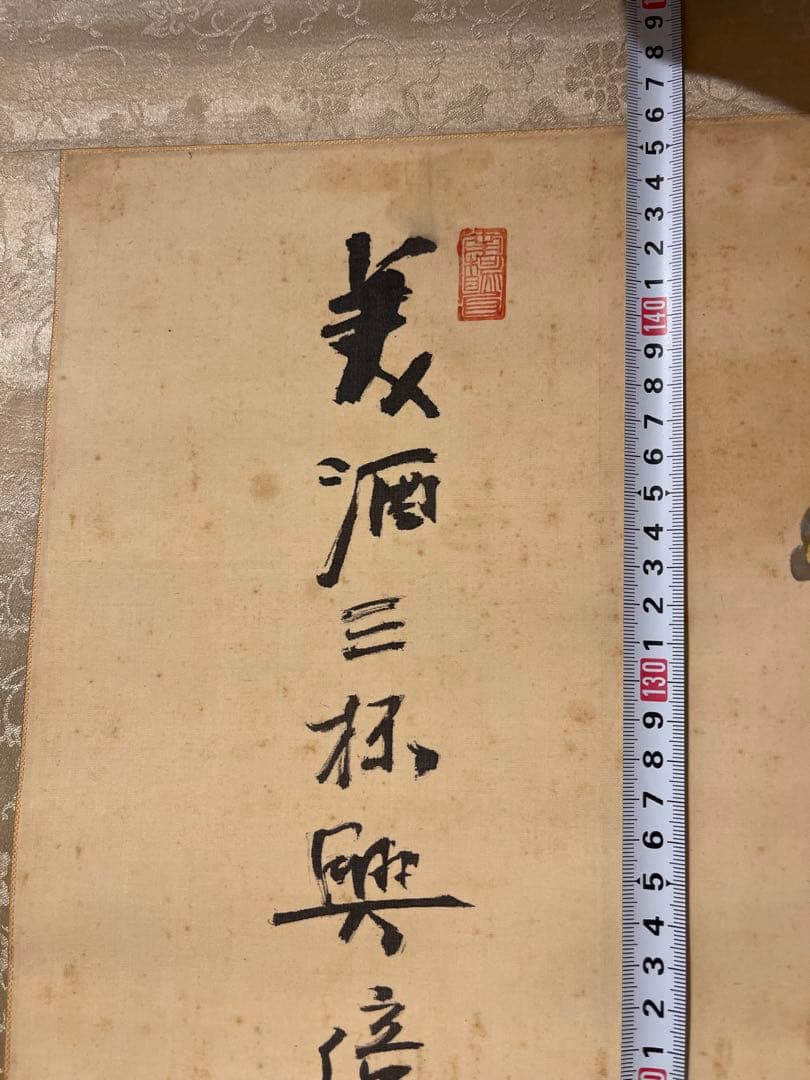 美酒三杯興倍
9
8
7
6
5
4
3
2
1
140
9
8
7
6
5
4
3
2
1
130
9
8
7
6
5
4
3
2
1